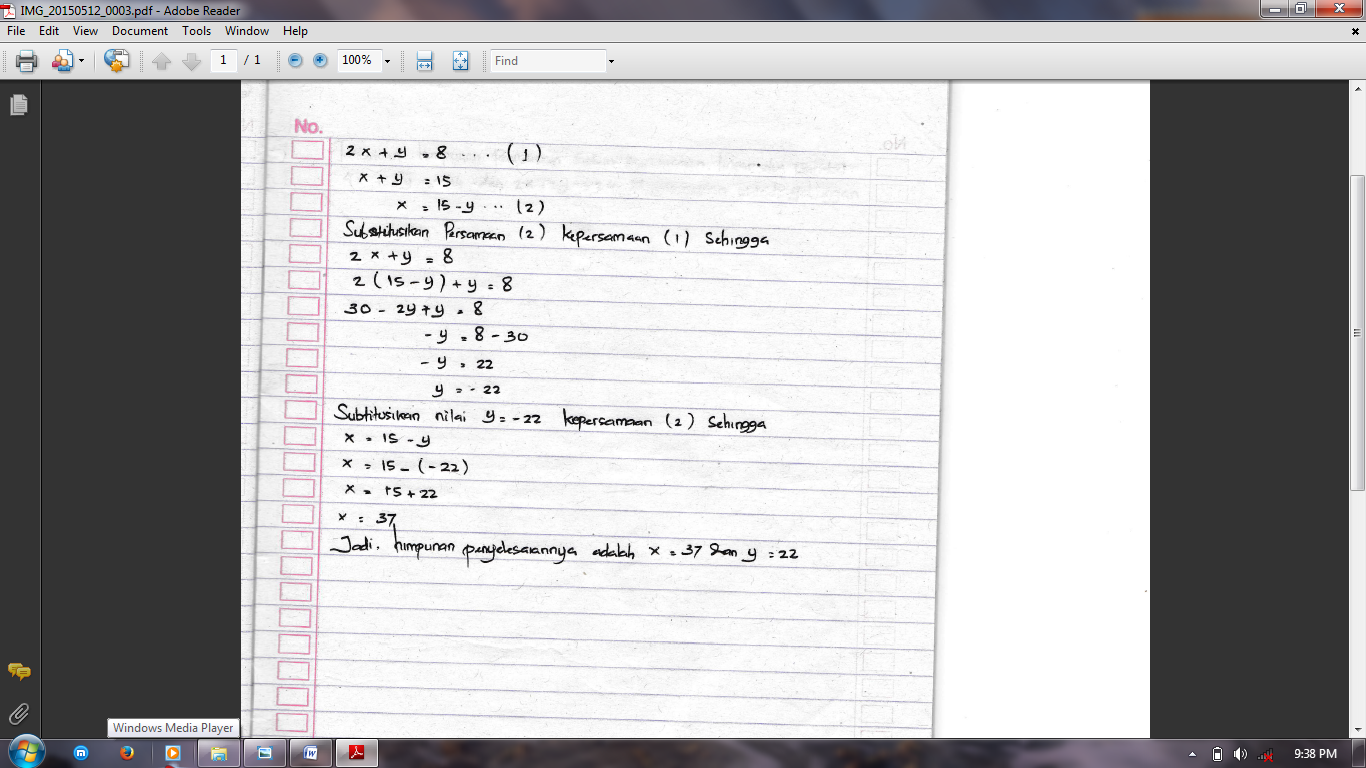 IMG_20150512_0003.pdf - Adobe Reader
File Edit View Document Tools Window Help
1 / 1 100% Find
No.
2x + y = 8 ... (1)
x + y = 15
x = 15 - y ... (2)
Substitusikan Persamaan (2) kepersamaan (1) Sehingga
2x + y = 8
2(15 - y) + y = 8
30 - 2y + y = 8
- y = 8 - 30
- y = 22
y = - 22
Subtitusikan nilai y = -22 kepersamaan (2) Sehingga
x = 15 - y
x = 15 - (-22)
x = 15 + 22
x = 37
Jadi. himpunan penyelesaiannya adalah x = 37 dan y = 22
Windows Media Player
9:38 PM